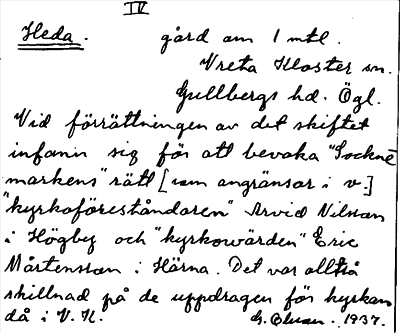 IV
Heda. gård om 1 mtl.
Vreta Kloster sn.
Gullbergs hd. Ögl.
Vid förrättningen av det skiftet
infann sig för att bevaka "Sockne
markens" rätt [som angränsar i v.]
"kyrkoföreståndaren" Arvid Nilsson
i Högby och "kyrkowärden" Eric
Mårtensson i Härna. Det var alltså
skillnad på de uppdragen för kyrkan
då i V. K. 1937.